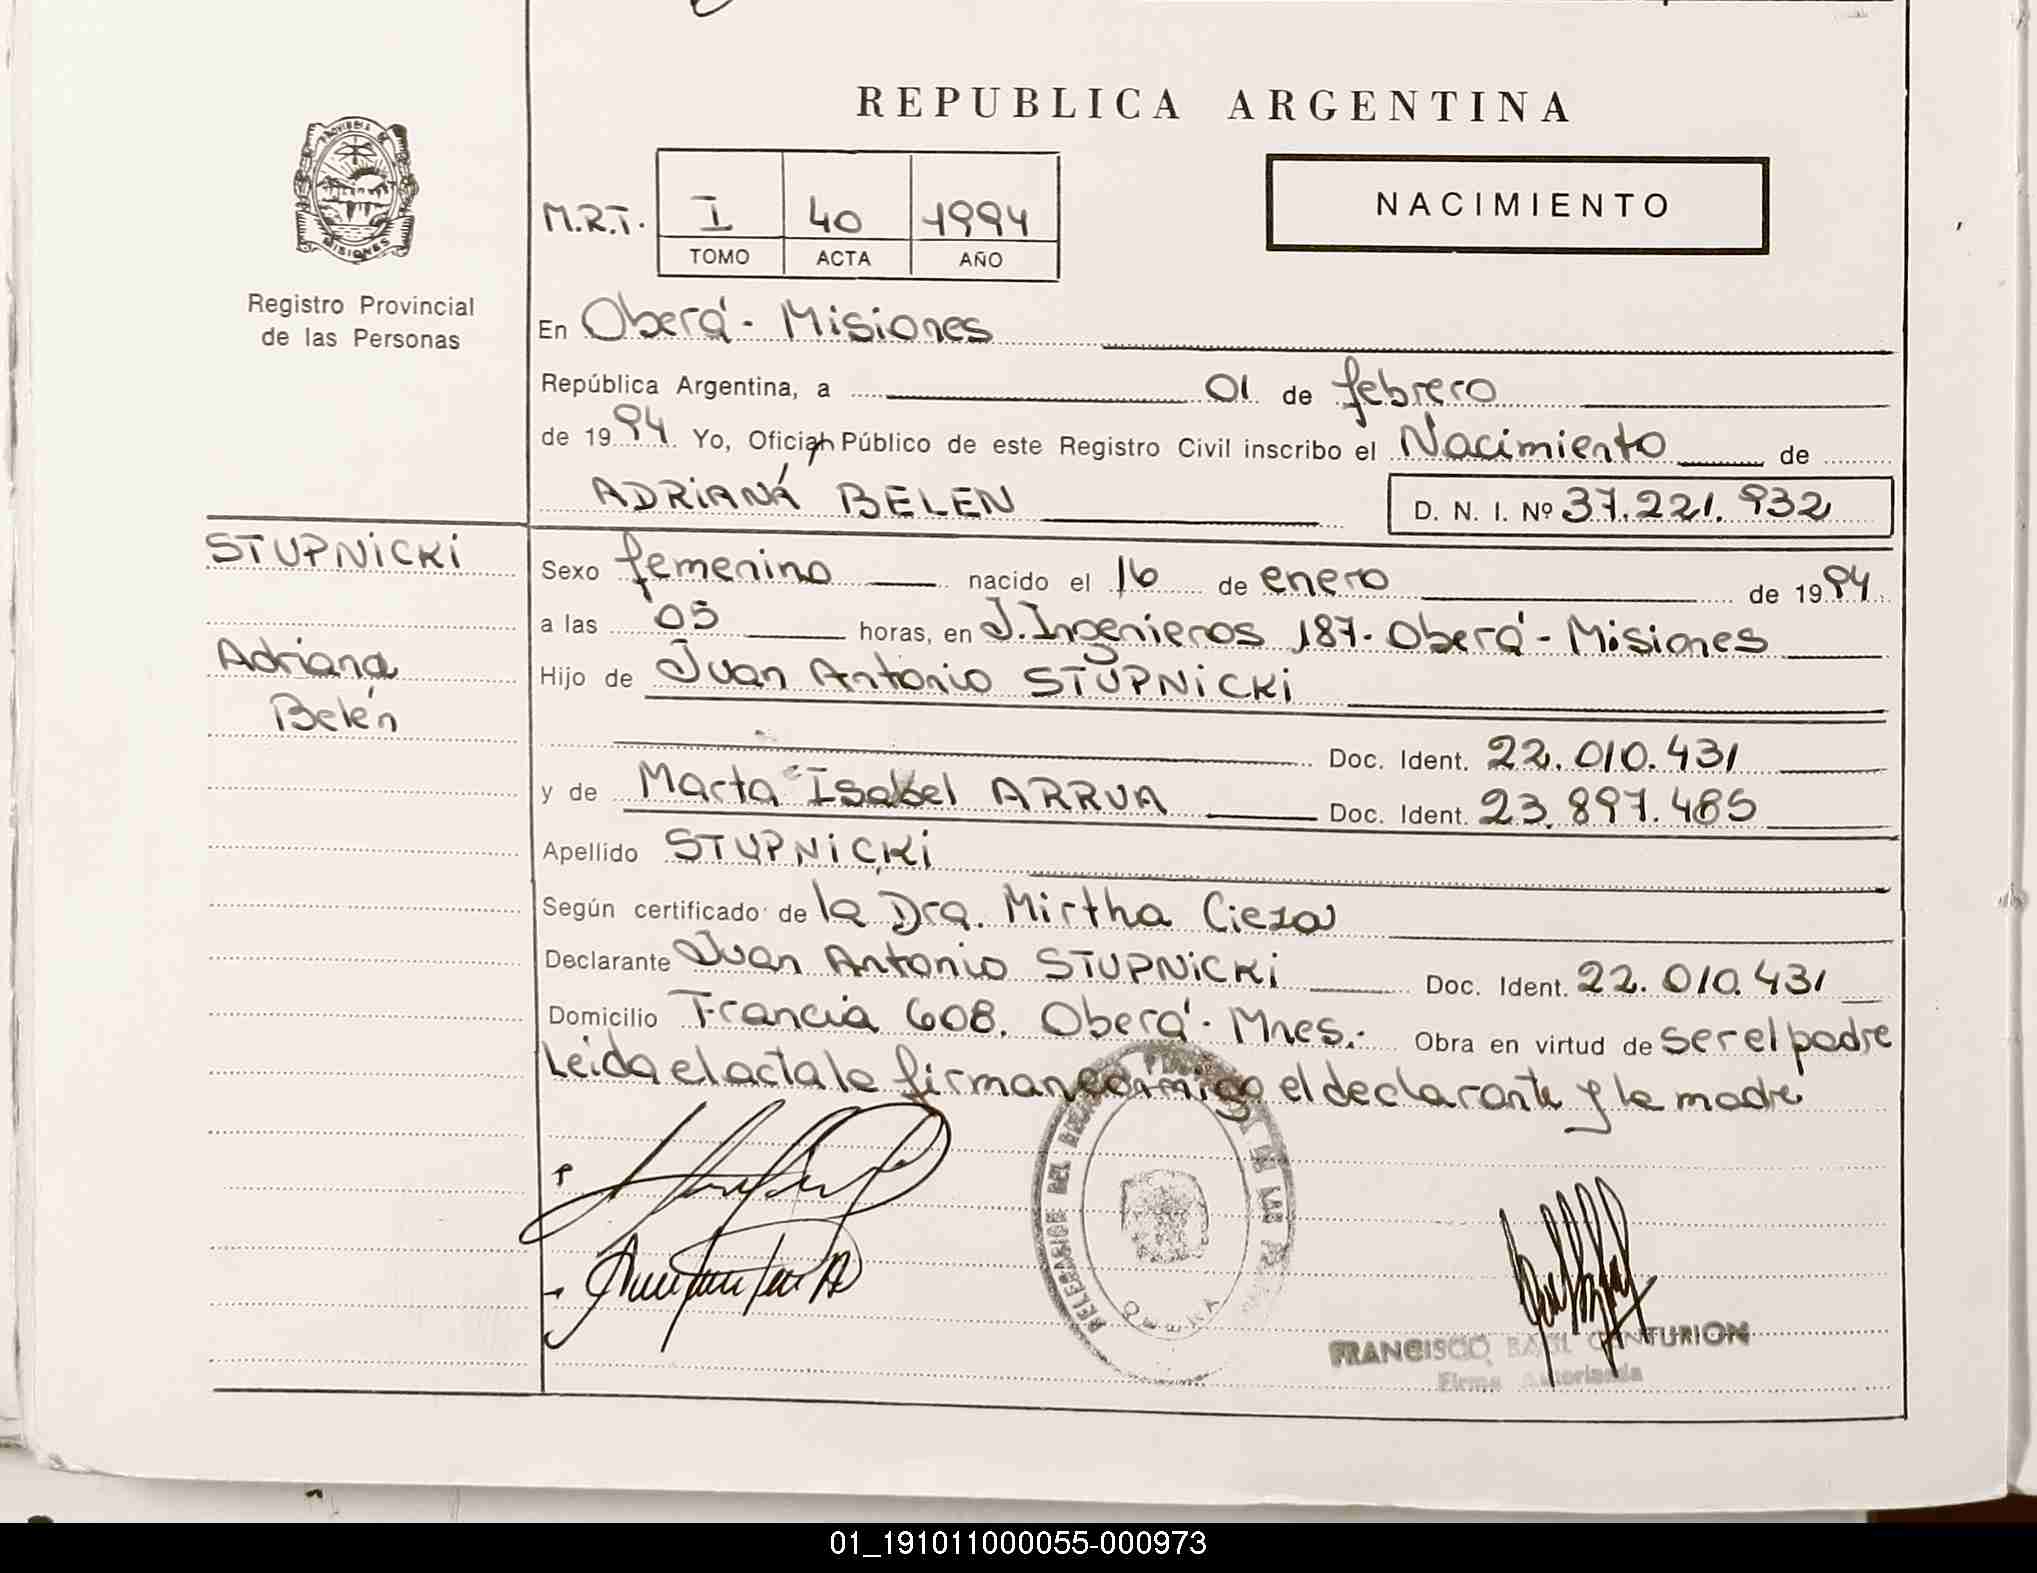 REPUBLICA ARGENTINA
PROVINCIA DE
MISIONES
Registro Provincial
de las Personas
M.R.T. I 40 1994
TOMO ACTA AÑO
NACIMIENTO
En Oberá - Misiones
República Argentina, a 01 de febrero
de 1994 Yo, Oficial Público de este Registro Civil inscribo el Nacimiento de
ADRIANA BELEN D. N. I. Nº 37.221.932
STUPNICKI
Adriana
Belén
Sexo femenino nacido el 16 de enero de 1994
a las 05 horas, en J. Ingenieros 187 - Oberá - Misiones
Hijo de Juan Antonio STUPNICKI
Doc. Ident. 22.010.431
y de Marta Isabel ARRUA Doc. Ident. 23.897.485
Apellido STUPNICKI
Según certificado de la Dra. Mirtha Cieza
Declarante Juan Antonio STUPNICKI Doc. Ident. 22.010.431
Domicilio Francia 608. Oberá - Mnes.- Obra en virtud de ser el padre
Leida el acta la firman conmigo el declarante y la madre
OBERA
FRANCISCO CENTURION
Firma Autorizada
01_191011000055-000973